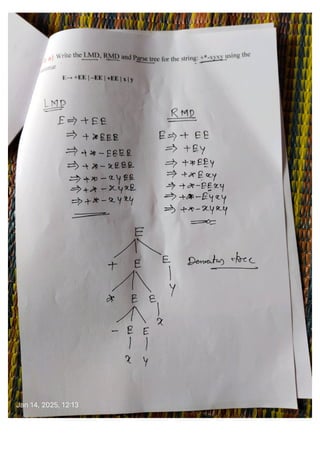 Write the LMD, RMD and Parse tree for the string: +*-xyxy using the
E→ +EE | -EE | *EE | x | y
LMD
E ⇒ +EE
⇒ +*EEE
⇒ +*-EEEE
⇒ +*-xEEE
⇒ +*-xyEE
⇒ +*-xyxE
⇒ +*-xyxy
RMD
E ⇒ + EE
⇒ +Ey
⇒ +*EEy
⇒ +*Exy
⇒ +*-EExy
⇒ +*-Eyxy
⇒ +*-xyxy
E
+ E E
* E E y
- E E x
x y
tree
Jan 14, 2025, 12:13